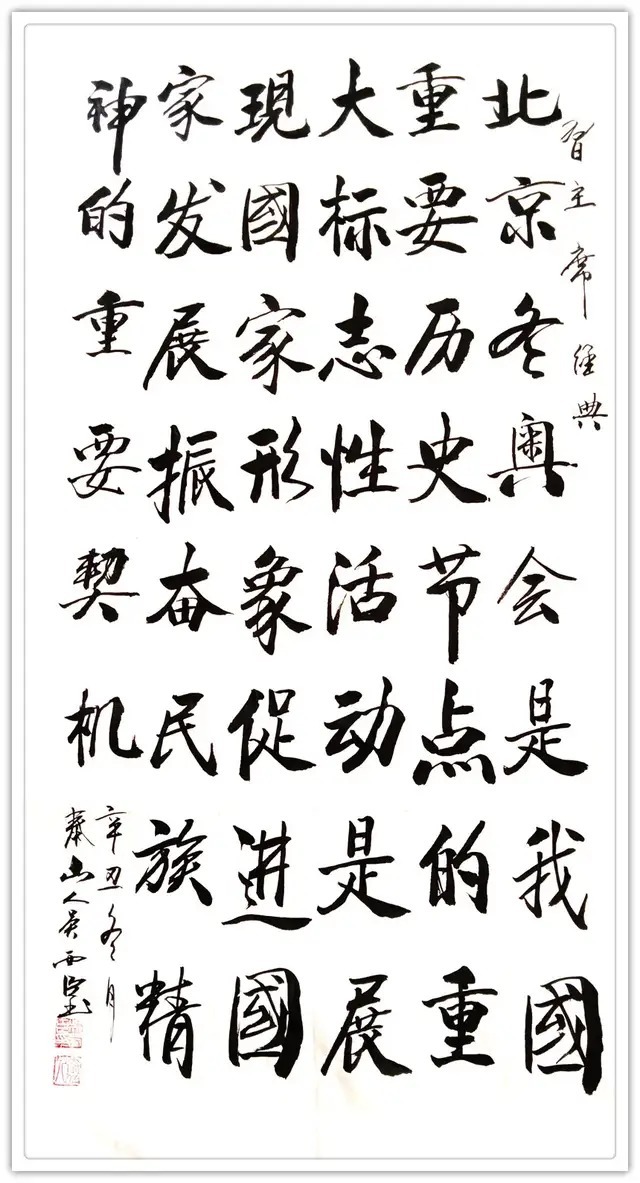 習主席經典
北京冬奥会是我國
重要历史节点的重
大标志性活动是展
現國家形象促進國
家发展振奋民族精
神的重要契机
辛丑冬月
泰山人吴西